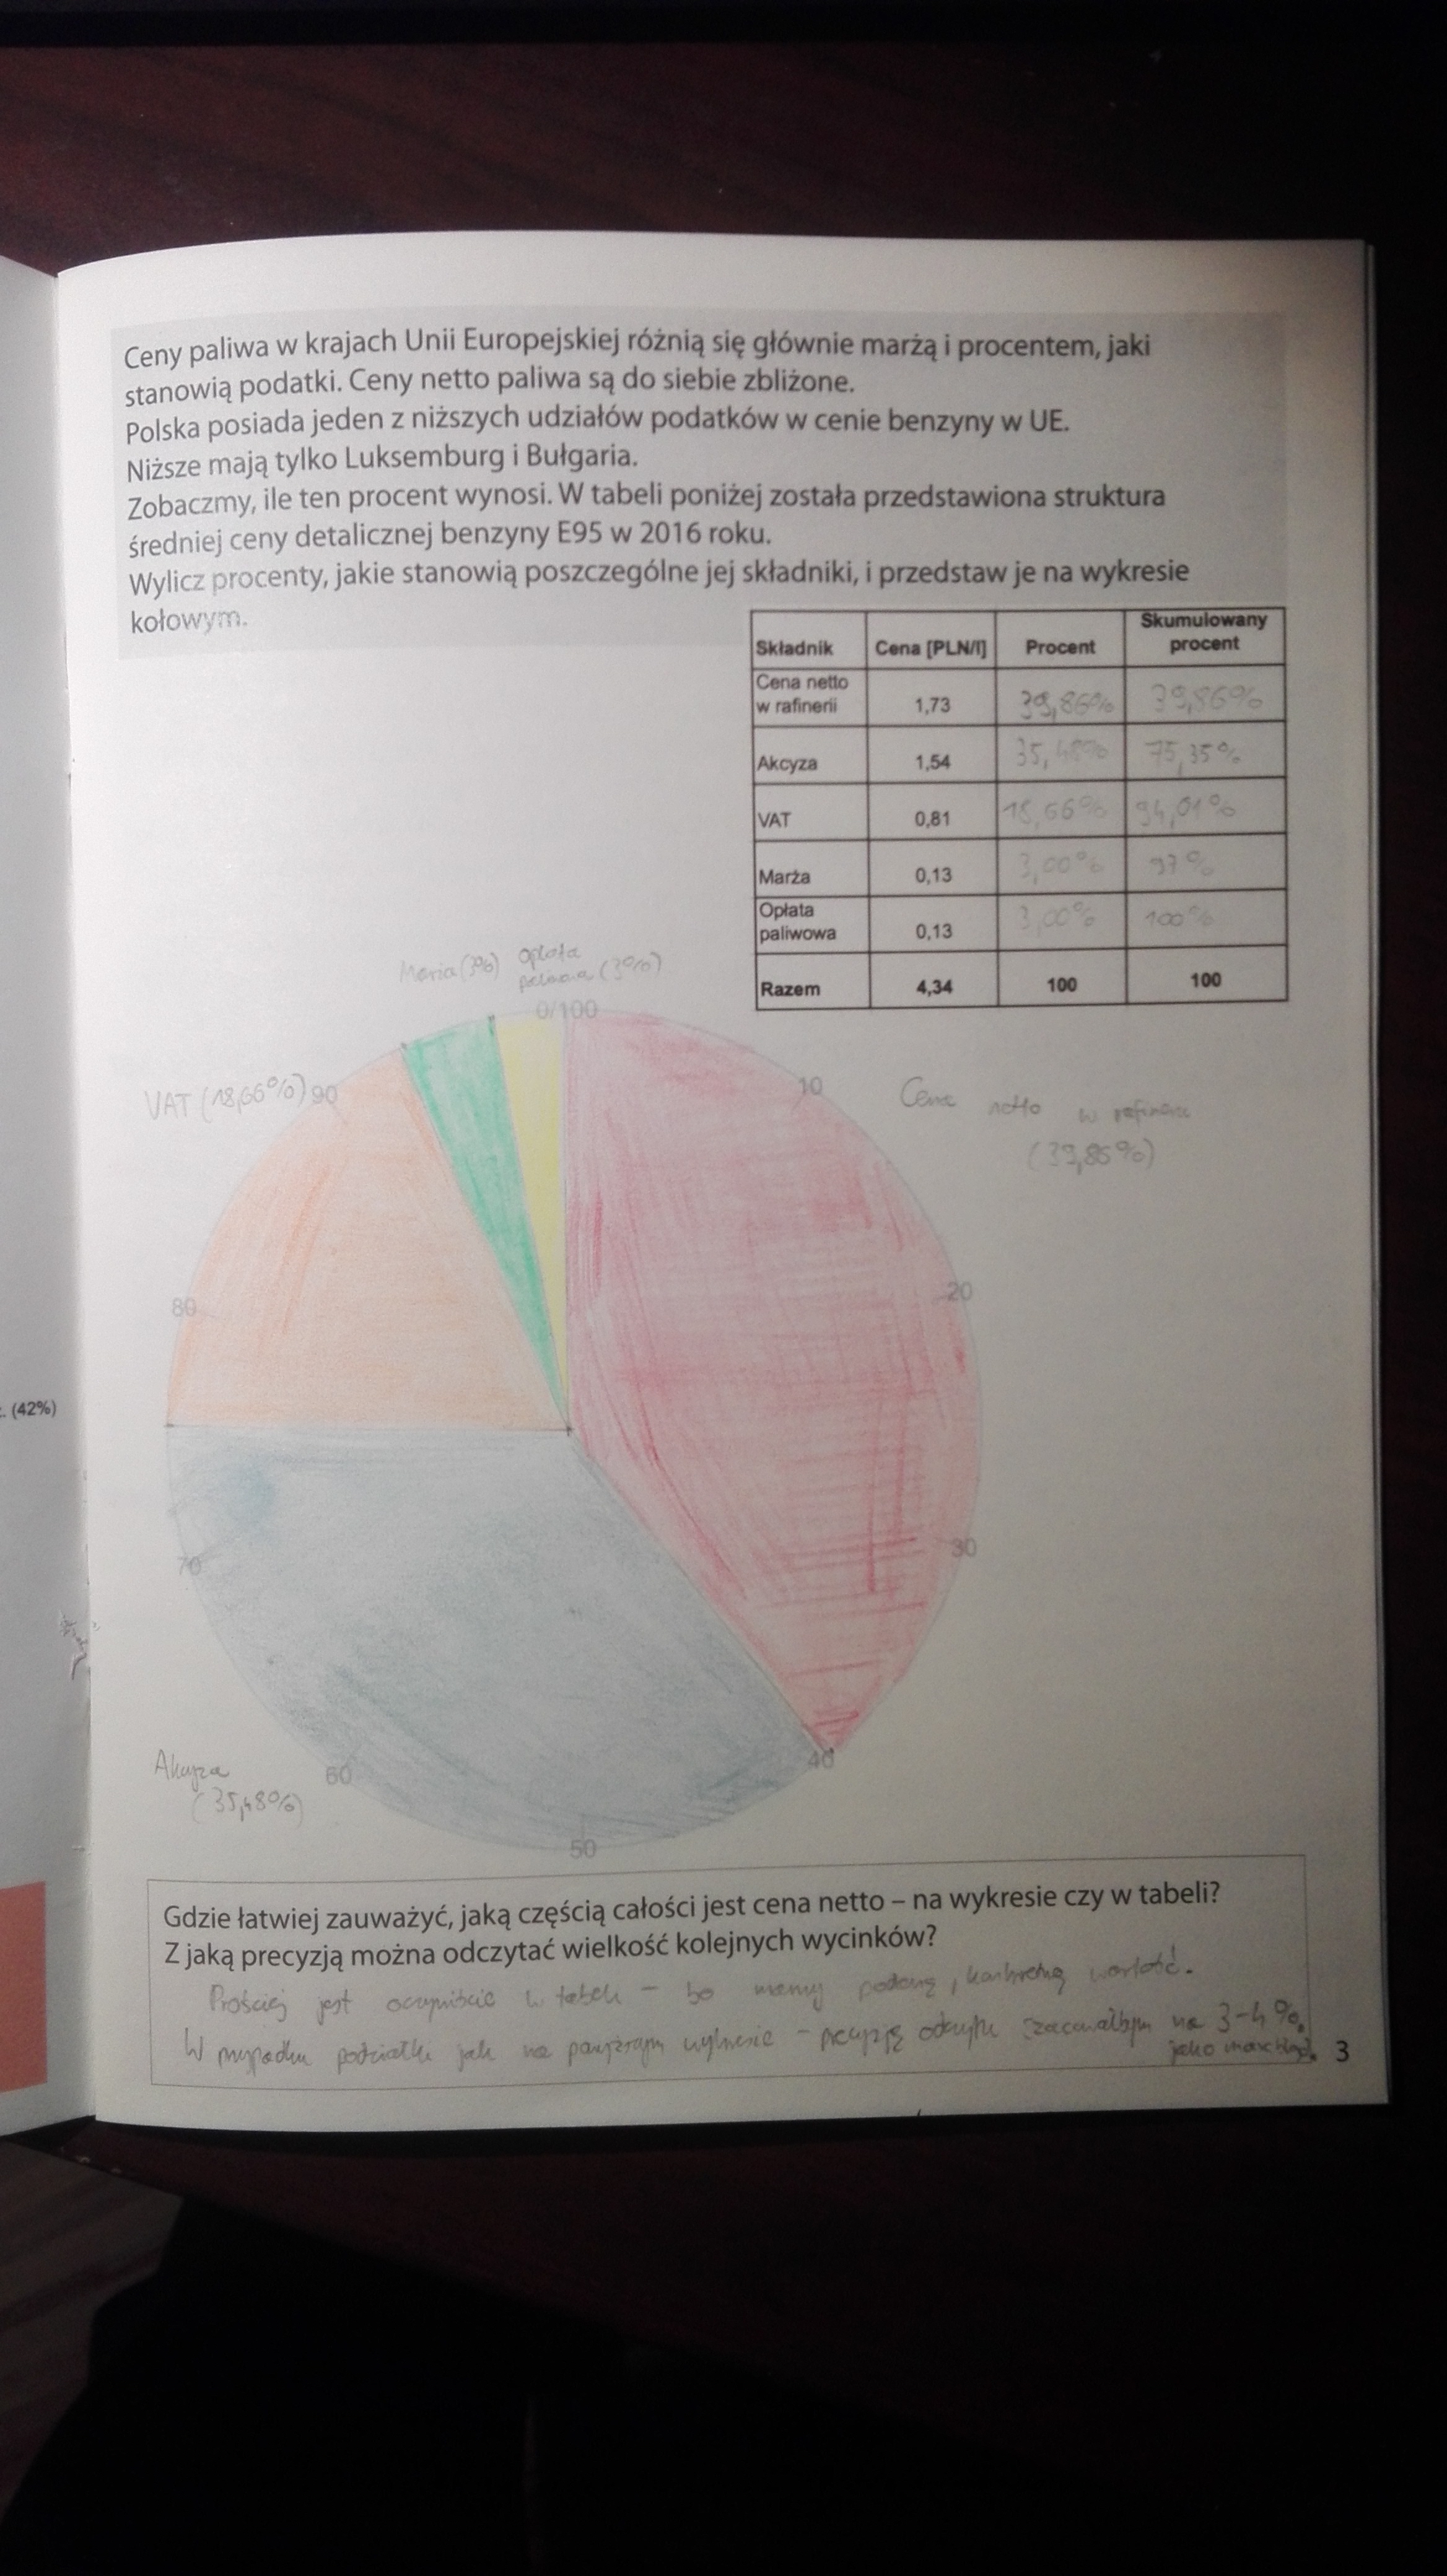 Ceny paliwa w krajach Unii Europejskiej różnią się głównie marżą i procentem, jaki
stanowią podatki. Ceny netto paliwa są do siebie zbliżone.
Polska posiada jeden z niższych udziałów podatków w cenie benzyny w UE.
Niższe mają tylko Luksemburg i Bułgaria.
Zobaczmy, ile ten procent wynosi. W tabeli poniżej została przedstawiona struktura
średniej ceny detalicznej benzyny E95 w 2016 roku.
Wylicz procenty, jakie stanowią poszczególne jej składniki, i przedstaw je na wykresie
kołowym.
Składnik Cena [PLN/l] Procent Skumulowany procent
Cena netto w rafinerii 1,73 39,86% 39,86%
Akcyza 1,54 35,48% 75,35%
VAT 0,81 18,66% 94,01%
Marża 0,13 3,00% 97%
Opłata paliwowa 0,13 3,00% 100%
Razem 4,34 100 100
Marża (3%) opłata
paliwowa (3%)
0/100
VAT (18,66%) 90
10
Cena netto w rafinerii
(39,86%)
80
20
(42%)
70
30
Akcyza
(35,48%)
60
40
50
Gdzie łatwiej zauważyć, jaką częścią całości jest cena netto – na wykresie czy w tabeli?
Z jaką precyzją można odczytać wielkość kolejnych wycinków?
Prościej jest oczywiście w tabeli – bo mamy podaną, konkretną wartość.
W przypadku podziałki jak na powyższym wykresie – precyzję odczytu szacowałbym na 3-4%,
jako max błąd.
3